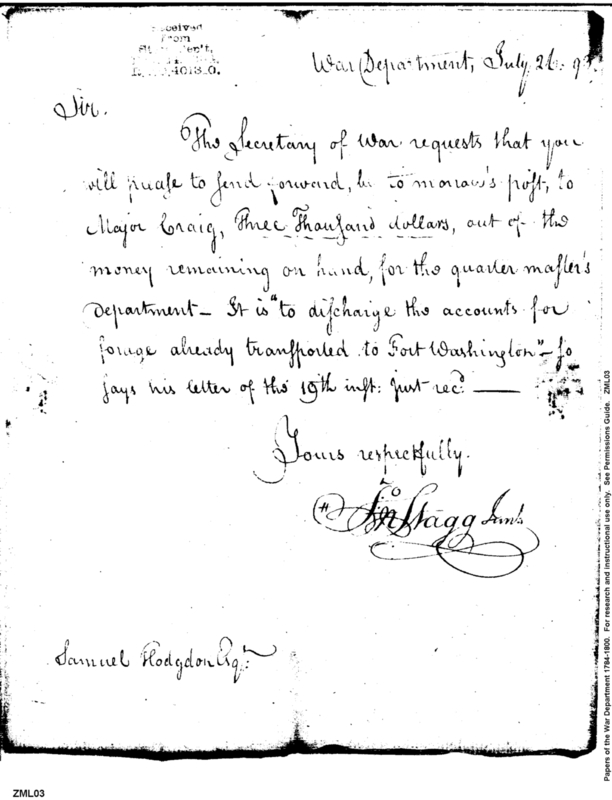 Received
From
War Department, July 26. 93.
Sir.
The Secretary of War requests that you
will please to send forward, by to morrow's post, to
Major Craig, Three Thousand dollars, out of the
money remaining on hand, for the quarter master's
department_ It is "to discharge the accounts for
forage already transported to Fort Washington"_ so
says his letter of the 19th inst: just recd.
Yours respectfully.
Jno Stagg Junr
Samuel Hodgdon Esqr
Papers of the War Department 1784-1800. For research and instructional use only. See Permissions Guide. ZML03
ZML03